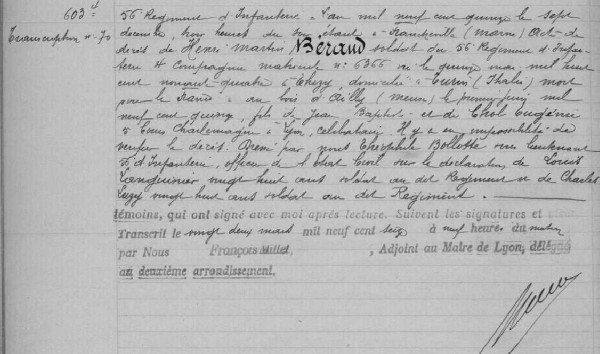 603 et
Transcription n° 70
56 Regiment d'Infanterie. L'an mil neuf cent quinze le sept
décembre, trois heures du soir étant à (Marne) Acte de
décès de Henri Martin Béraud soldat du 56 Régiment d'Infan-
terie 4 Compagnie matricule n° 6366 né le quinze mai mil huit
cent nonante quatre à domicilié à Turin (Italie) mort
pour la France au bois d'Ailly (Meuse) le premier juin mil
neuf cent quinze, fils de Jean Baptiste et de Eugénie
5 Cours Charlemagne à Lyon, célibataire. Il y a eu impossibilité de
vérifier le décès. Dressé par nous Théophile Bollotte sous lieutenant
d'Infanterie, officier de l'état Civil sur la déclaration de Louis
Languinier vingt huit ans soldat au dit Regiment et de Charles
Luzy vingt huit ans soldat au dit Regiment.
témoins, qui ont signé avec moi après lecture. Suivent les signatures et
Transcrit le vingt deux mars mil neuf cent seize à neuf heures du matin
par Nous François Millet, , Adjoint au Maire de Lyon, délégué
au deuxième arrondissement.